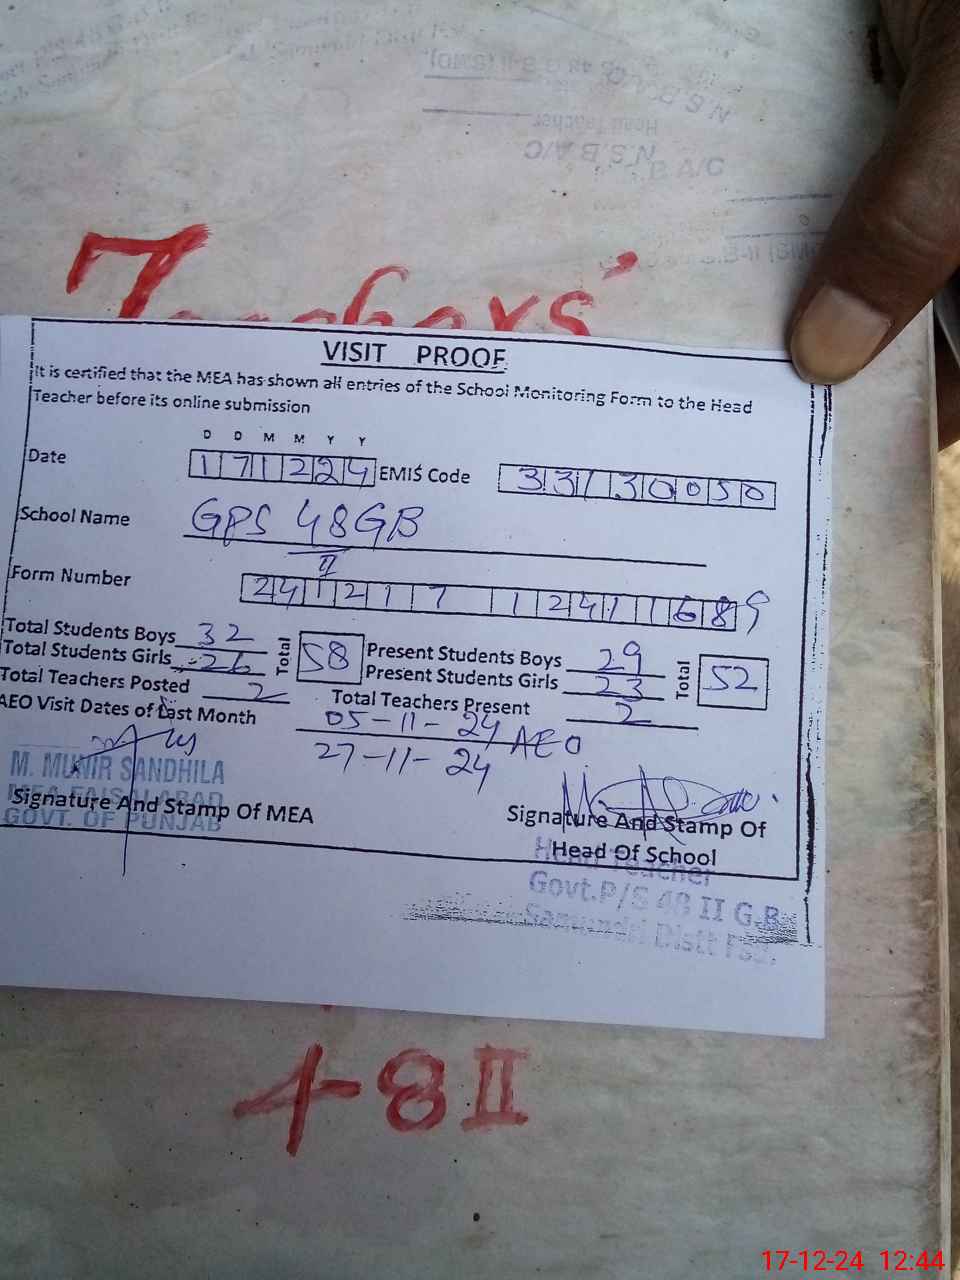 Teachers'
VISIT PROOF
It is certified that the MEA has shown all entries of the School Monitoring Form to the Head
Teacher before its online submission
D D M M Y Y
Date 171224 EMIS Code 33130050
School Name GPS 48GB
II
Form Number 24121712411689
Total Students Boys 32 Total 58 Present Students Boys 29 Total 52
Total Students Girls 26 Present Students Girls 23
Total Teachers Posted 2 Total Teachers Present 2
AEO Visit Dates of Last Month 05-11-24 AEO
27-11-24
M. MUNIR SANDHILA
MEA FAISALABAD
GOVT. OF PUNJAB
Signature And Stamp Of MEA
Signature And Stamp Of
Head Of School
Head Teacher
Govt.P/S 48 II G.B
Samundri Distt FSD.
48 II
17-12-24 12:44